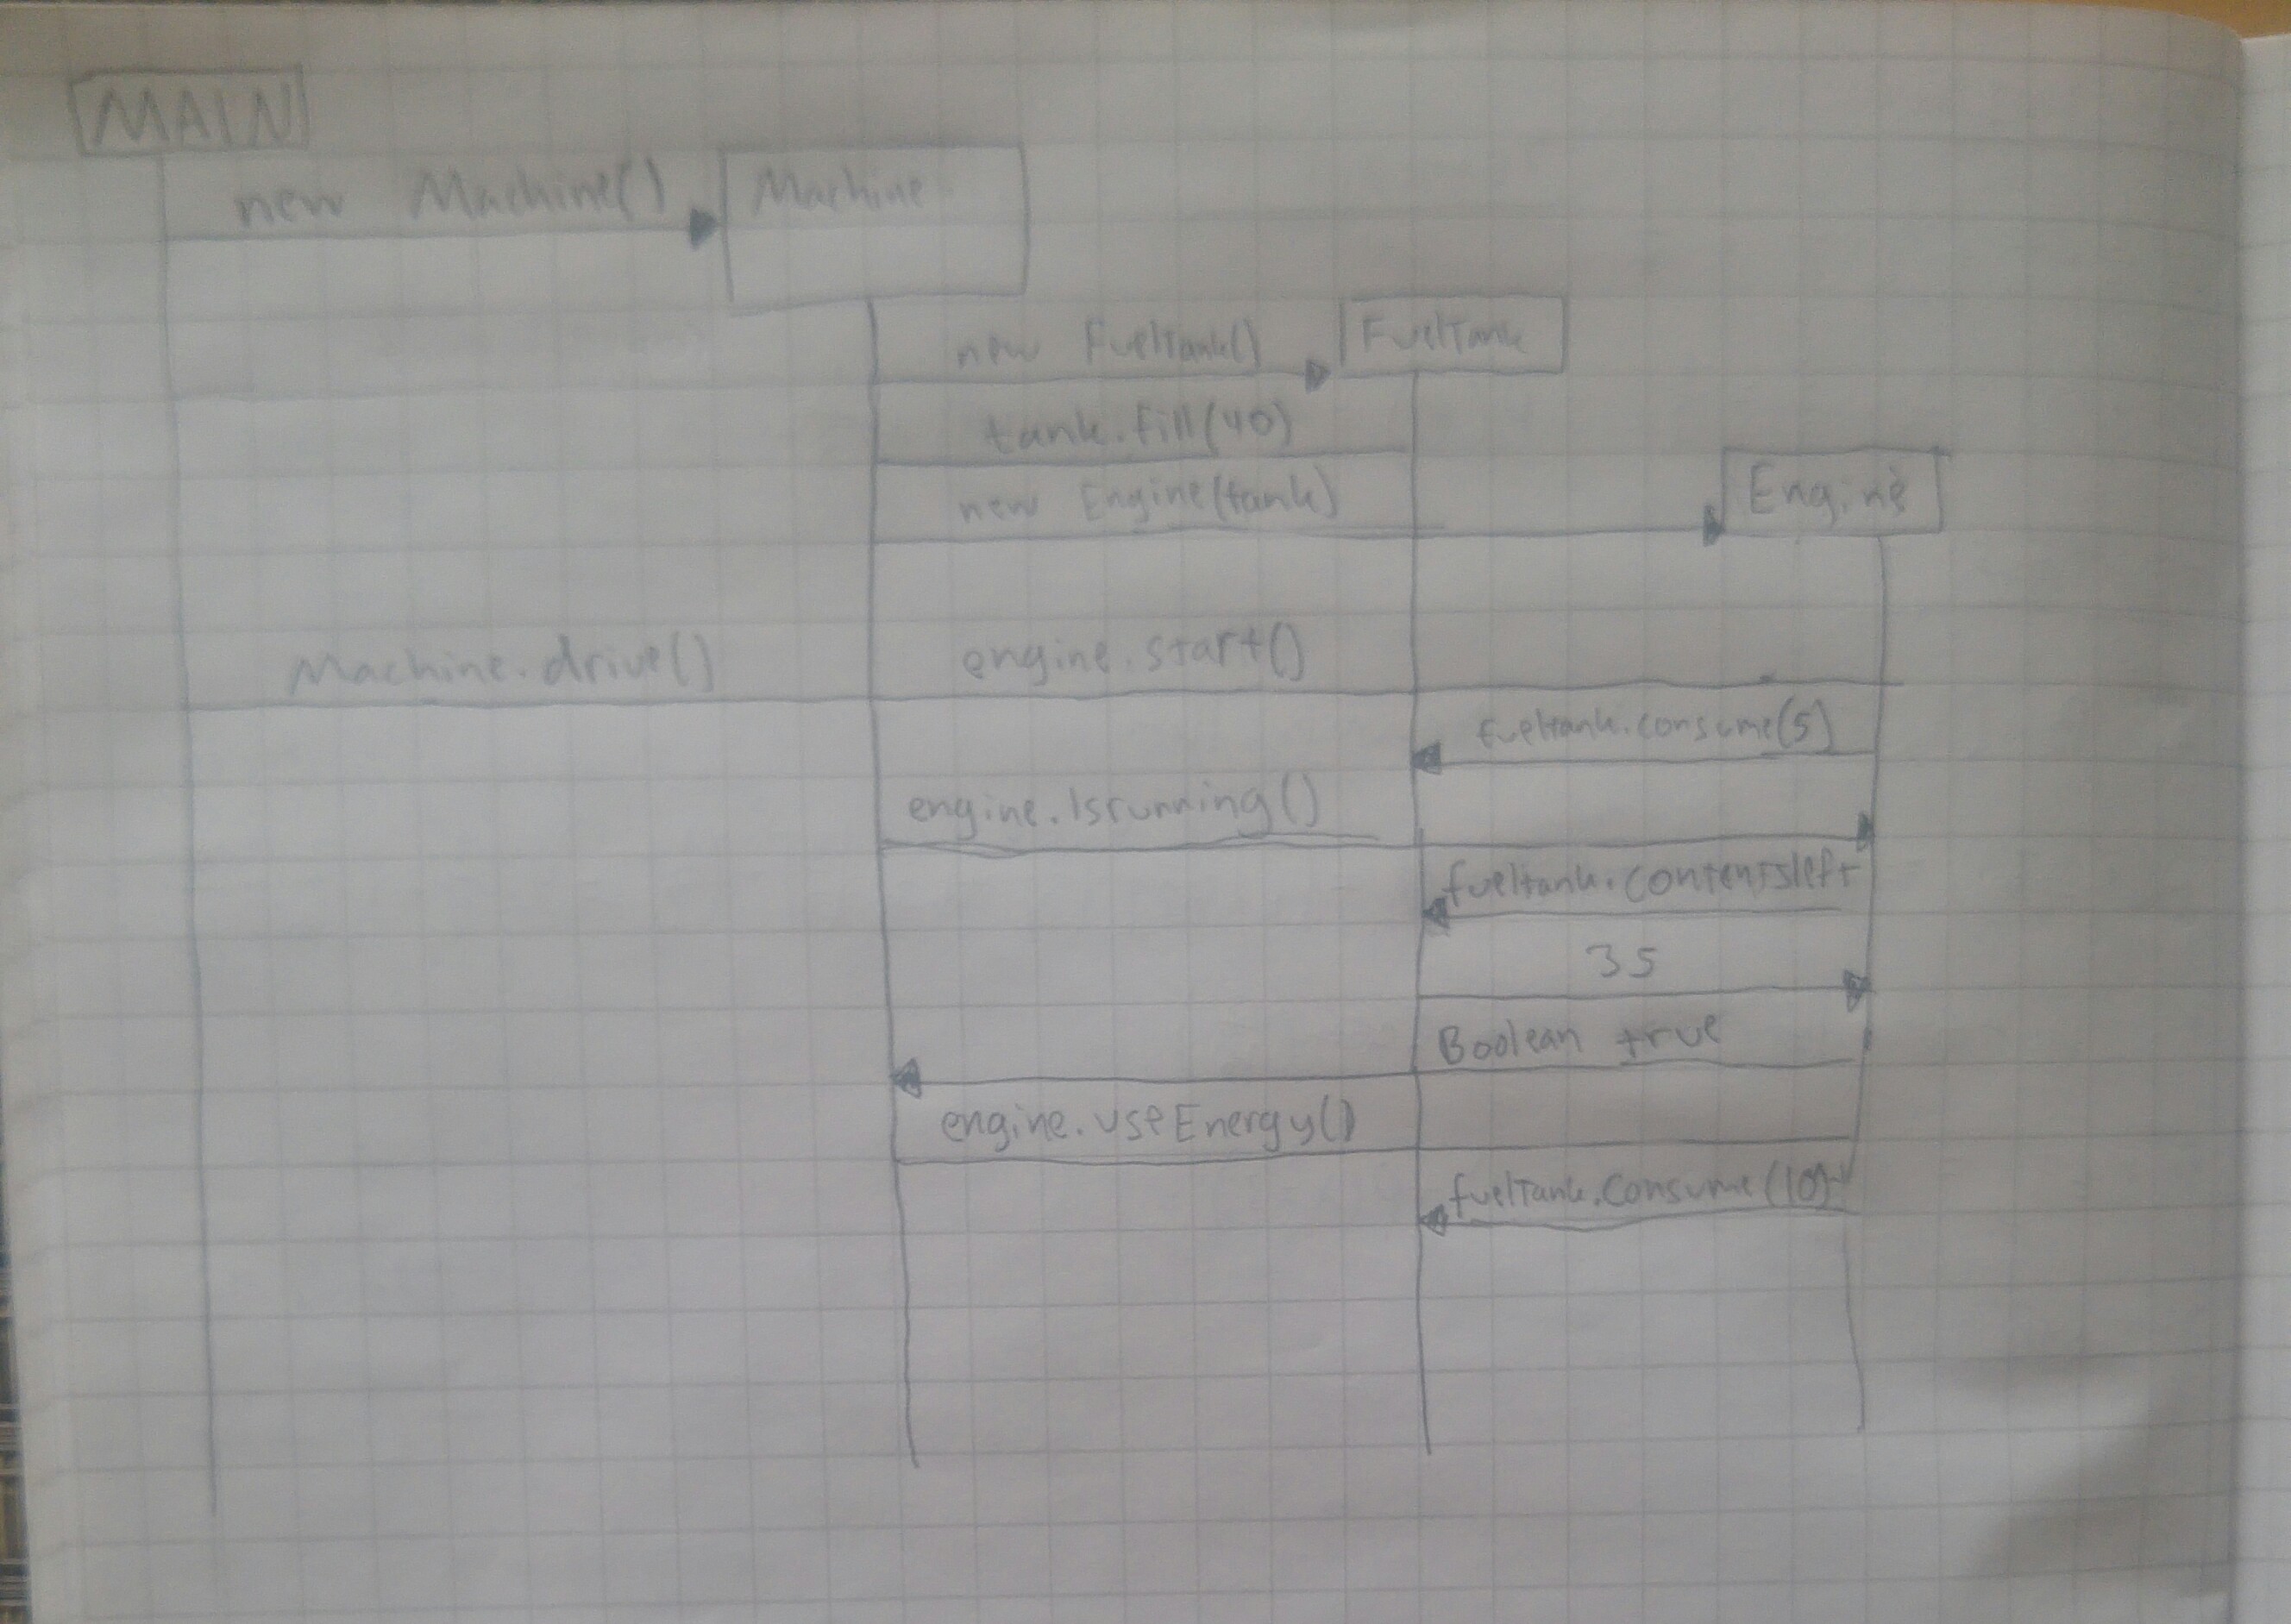 MAIN
new Machine() Machine
new FuelTank() FuelTank
tank.fill(40)
new Engine(tank) Engine
Machine.drive() engine.start()
fueltank.consume(5)
engine.Isrunning()
fueltank.contentsleft
35
Boolean true
engine.useEnergy()
fuelTank.Consume(10)